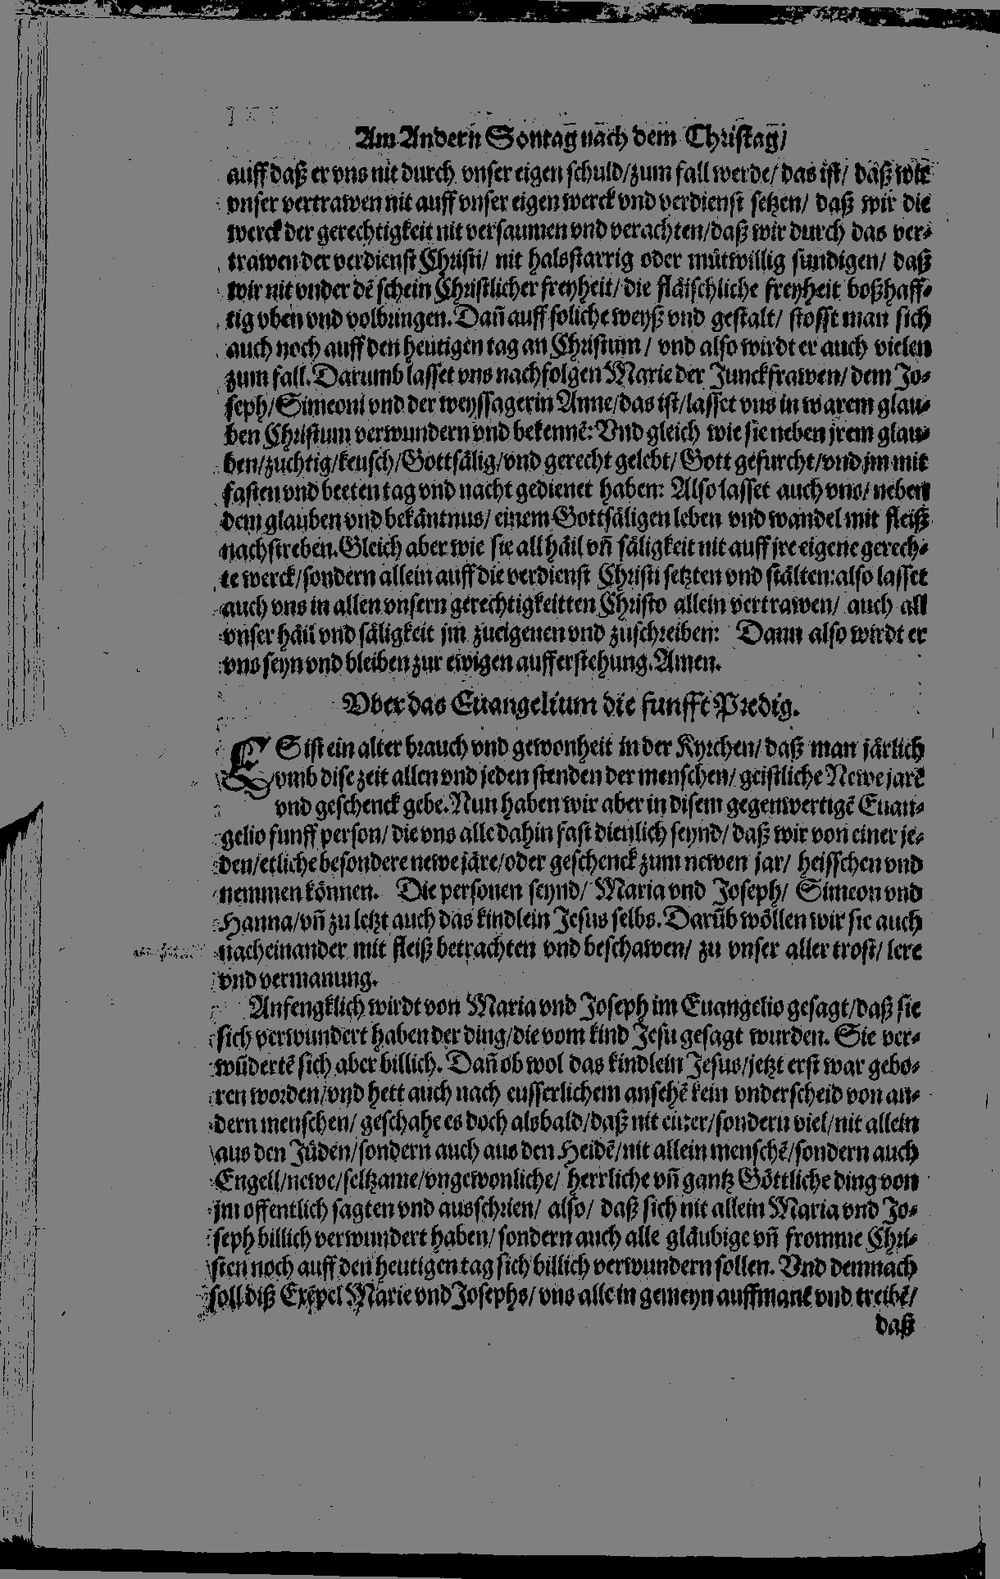 Am Andern Sontag nach dem Christag/
auff daß er vns nit durch vnser eigen schuld/zum fall werde/ das ist/ daß wir
vnser vertrawen nit auff vnser eigen werck vnd verdienst setzen/ daß wir die
werck der gerechtigkeit nit versaumen vnd verachten/daß wir durch das ver-
trawen der verdienst Christi/ nit halsstarrig oder můtwillig sundigen/ daß
wir nit vnder dē schein Christlicher freyheit/ die fläischliche freyheit boßhaff-
tig vben vnd volbringen. Dañ auff soliche weyß vnd gestalt/ stosst man sich
auch noch auff den heutigen tag an Christum/ vnd also wirdt er auch vielen
zum fall. Darumb lasset vns nachfolgen Marie der Junckfrawen/ dem Jo-
seph/ Simeoni vnd der weyssagerin Anne/das ist/lasset vns in warem glau-
ben Christum verwundern vnd bekennē: Vnd gleich wie sie neben jrem glau-
ben/zuchtig/keusch/Gottsälig/vnd gerecht gelebt/ Gott gefurcht/vnd jm mit
fasten vnd beeten tag vnd nacht gedienet haben: Also lasset auch vns/ neben
dem glauben vnd bekäntnus/ einem Gottsäligen leben vnd wandel mit fleiß
nachstreben. Gleich aber wie sie all häil vñ säligkeit nit auff jre eigene gerech-
te werck/sondern allein auff die verdienst Christi setzten vnd stälten:also lasset
auch vns in allen vnsern gerechtigkeitten Christo allein vertrawen/ auch all
vnser häil vnd säligkeit jm zueigenen vnd zuschreiben: Dann also wirdt er
vns seyn vnd bleiben zur ewigen aufferstehung. Amen.
Vber das Euangelium die funfft Predig.
ES ist ein alter brauch vnd gewonheit in der Kyrchen/ daß man järlich
vmb dise zeit allen vnd jeden stenden der menschen/ geistliche Newe jare
vnd geschenck gebe. Nun haben wir aber in disem gegenwertigē Euan-
gelio funff person/ die vns alle dahin fast dienlich seynd/ daß wir von einer je-
den/etliche besondere newe järe/oder geschenck zum newen jar/ heisschen vnd
nemmen können. Die personen seynd/ Maria vnd Joseph/ Simeon vnd
Hanna/vñ zu letzt auch das kindlein Jesus selbs. Darūb wöllen wir sie auch
nacheinander mit fleiß betrachten vnd beschawen/ zu vnser aller trost/ lere
vnd vermanung.
Anfengklich wirdt von Maria vnd Joseph im Euangelio gesagt/daß sie
sich verwundert haben der ding/die vom kind Jesu gesagt wurden. Sie ver-
wūdertē sich aber billich. Dañ ob wol das kindlein Jesus/jetzt erst war gebo-
ren worden/vnd hett auch nach eusserlichem ansehē kein vnderscheid von an-
dern menschen/ geschahe es doch alsbald/daß nit einer/sondern viel/nit allein
aus den Jůden/sondern auch aus den Heidē/nit allein menschē/sondern auch
Engell/newe/seltzame/vngewonliche/ herrliche vñ gantz Göttliche ding von
jm offentlich sagten vnd ausschrien/ also/ daß sich nit allein Maria vnd Jo-
seph billich verwundert haben/ sondern auch alle gläubige vñ fromme Chri-
sten noch auff den heutigen tag sich billich verwundern sollen. Vnd demnach
soll diß Exēpel Marie vnd Josephs/ vns alle in gemeyn auffmanē vnd treibē/
daß